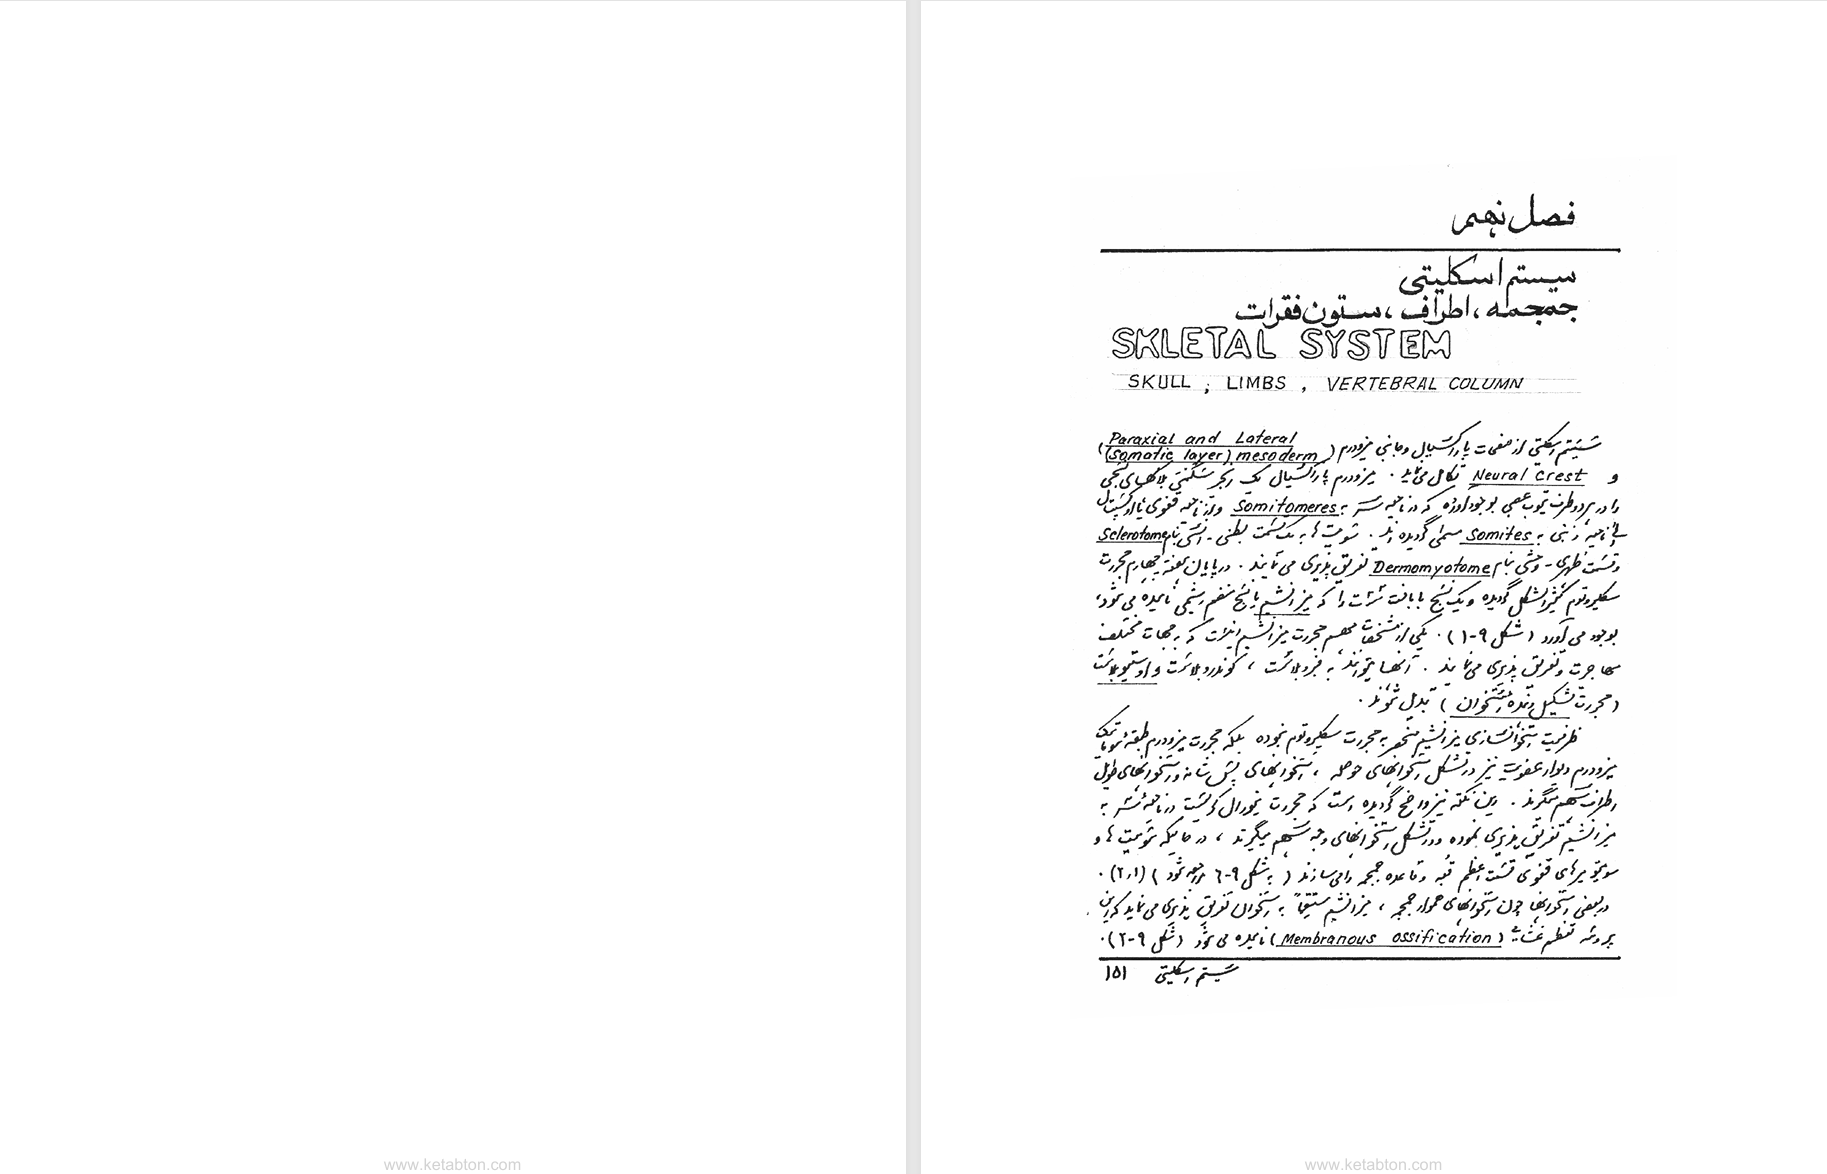 فصل نهم
سیستم اسکلیتی
جمجمه ، اطراف ، ستون فقرات
SKLETAL SYSTEM
SKULL ; LIMBS , VERTEBRAL COLUMN
سیستم اسکلیتی از صفحات پاراکسیال و جانبی میزودرم ( Paraxial and Lateral
(somatic layer) mesoderm )
و Neural Crest تکامل می نماید . میزودرم پاراکسیال یک
را در هر دو طرف تیوب عصبی بوجود آورده که در ناحیه سر به Somitomeres و از ناحیه قفوی یا اوکسیپیتال
ناحیه ذنبی به Somites مسمی گردیده اند . سومیت ها به یک قسمت بطنی - انسی بنام Sclerotome
و قسمت ظهری - وحشی بنام Dermomyotome تفریق پذیری می نمایند . در پایان هفته چهارم حجرات
سکلیروتوم کثیرالشکل گردیده و یک نسج با بافت را که میزانشیم یا نسج منضم رشیمی نامیده می شود ،
بوجود می آورد ( شکل ۹-۱ ) . یکی از مشخصات مهم حجرات میزانشیم اینست که به جهات مختلف
مهاجرت و تفریق پذیری می نمایند . آنها میتوانند به فبروبلاست ، کوندروبلاست و اوستیوبلاست
( حجرات تشکیل دهنده استخوان ) تبدیل شوند .
ظرفیت استخوانسازی میزانشیم منحصر به حجرات سکلیروتوم نبوده بلکه حجرات میزودرم طبقه سوماتیک
میزودرم دیوار عضویت نیز در تشکل استخوانهای حوصله ، استخوانهای شانه و استخوانهای طویل
اطراف سهم میگیرند . این نکته نیز واضح گردیده است که حجرات نیورال کرست در ناحیه سر به
میزانشیم تفریق پذیری نموده و در تشکل استخوانهای وجه سهم میگیرند ، در حالیکه سومیت ها و
سومیتومیرهای قفوی قسمت اعظم قبه و قاعده جمجمه را می سازند ( به شکل ۹-۶ مراجعه شود ) (۲،۱) .
در بعضی استخوانها چون استخوانهای هموار جمجمه ، میزانشیم مستقیماً به استخوان تفریق پذیری می نماید که این
پروسه تعظم غشایی ( Membranous ossification ) نامیده می شود ( شکل ۹-۲ ) .
سیستم اسکلیتی ۱۵۱
www.ketabton.com
www.ketabton.com